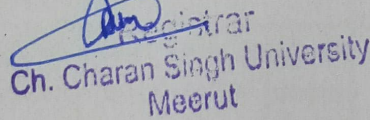 Registrar
Ch. Charan Singh University
Meerut